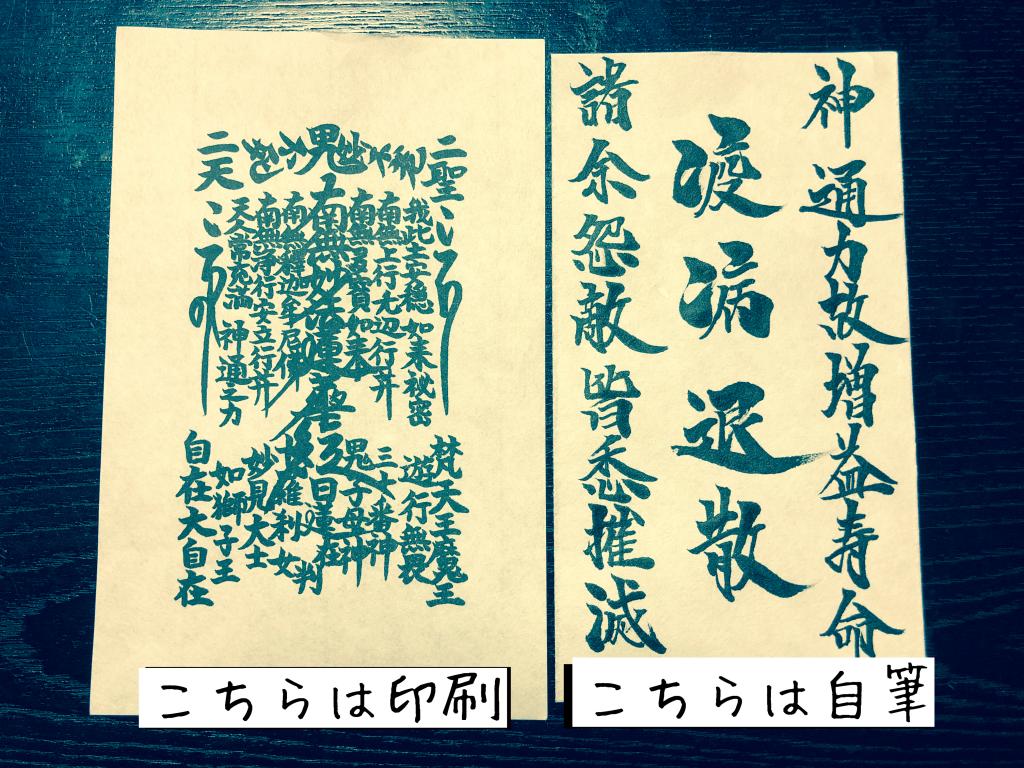 神通力故増益寿命
疫病退散
諸余怨敵皆悉摧滅
こちらは自筆
二聖
我此土安穏如来秘密
南無上行无辺行井
南無多寳如来
南無妙法蓮華経
日蓮
在判
南無釋迦牟尼佛
南無浄行安立行井
天人常充満神通之力
二天
梵天王魔王
遊行無畏
三十番神
鬼子母神
十羅刹女
妙見大士
如獅子王
自在大自在
こちらは印刷